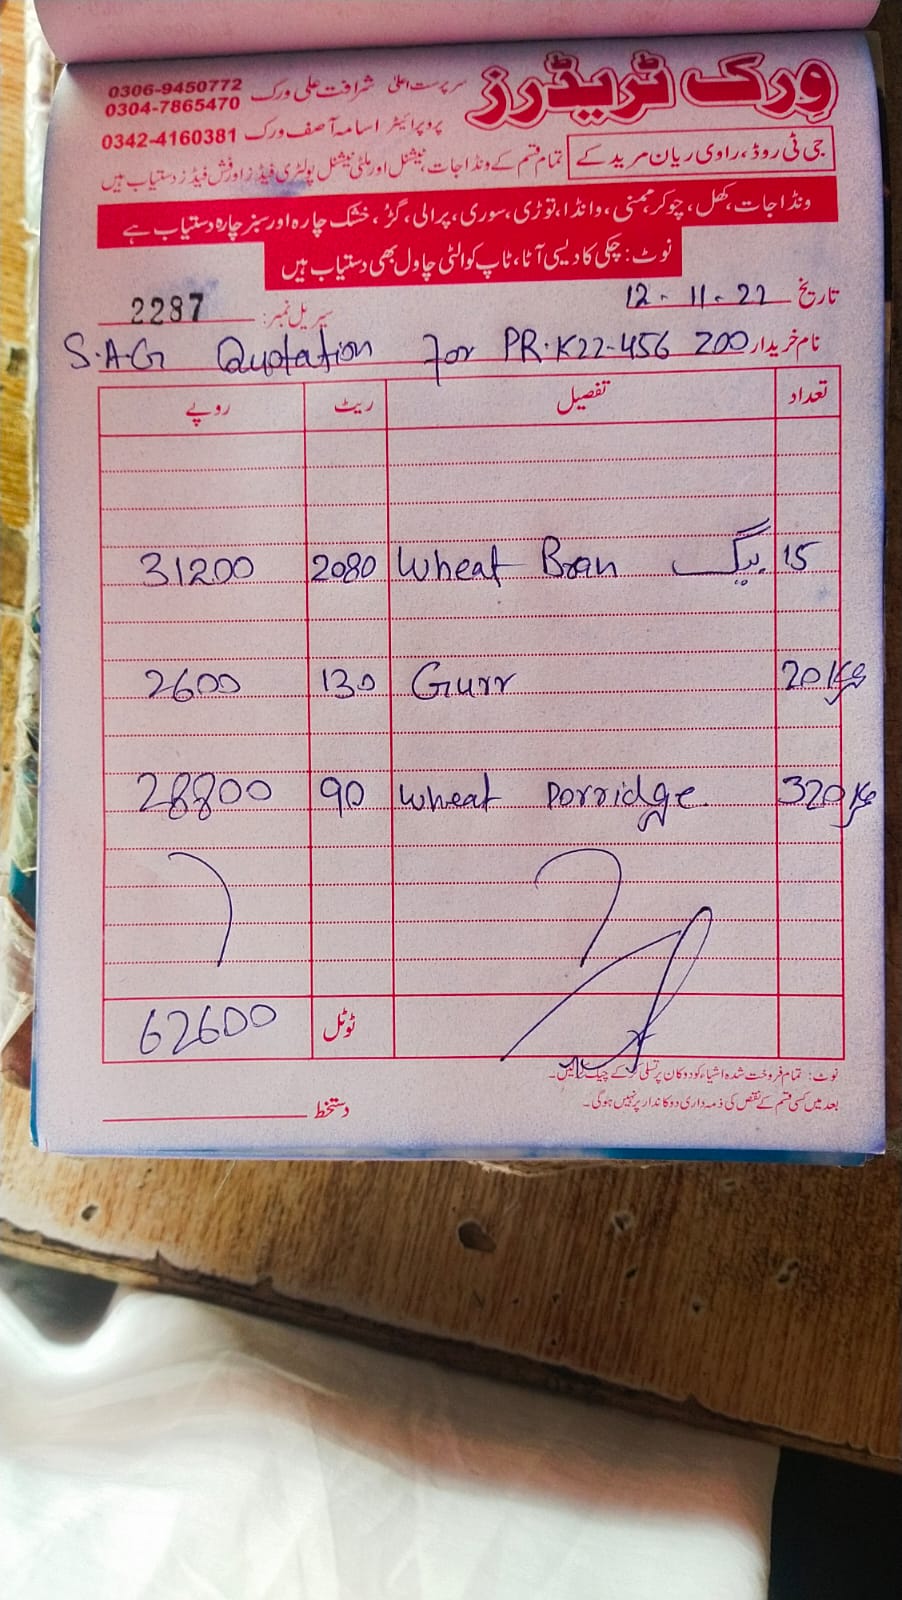 وِرک ٹریڈرز
سرپرست اعلیٰ شرافت علی ورک 0306-9450772
0304-7865470
پروپرائیٹر اسامہ آصف ورک 0342-4160381
جی ٹی روڈ، راوی ریان مریدکے
تمام قسم کے ونڈا جات، نیشنل اور ملٹی نیشنل پولٹری فیڈز اور فش فیڈز دستیاب ہیں
ونڈا جات، کھل، چوکر، ممنی، وانڈا، توڑی، سوری، پرالی، گڑ، خشک چارہ اور سبز چارہ دستیاب ہے
نوٹ: چکی کا دیسی آٹا، ٹاپ کوالٹی چاول بھی دستیاب ہیں
تاریخ 12-11-22 سیریل نمبر: 2287
نام خریدار S.A.G Quotation for PR.K22-456 200
تعداد تفصیل ریٹ روپے
15 بیگ Wheat Bran 2080 31200
20 Kg Gurr 130 2600
320 Kg Wheat Porridge 90 28800
ٹوٹل 62600
نوٹ: تمام فروخت شدہ اشیاء کو دوکان پر تسلی کر کے چیک
بعد میں کسی قسم کے نقص کی ذمہ داری دوکاندار پر نہیں ہوگی۔
دستخط